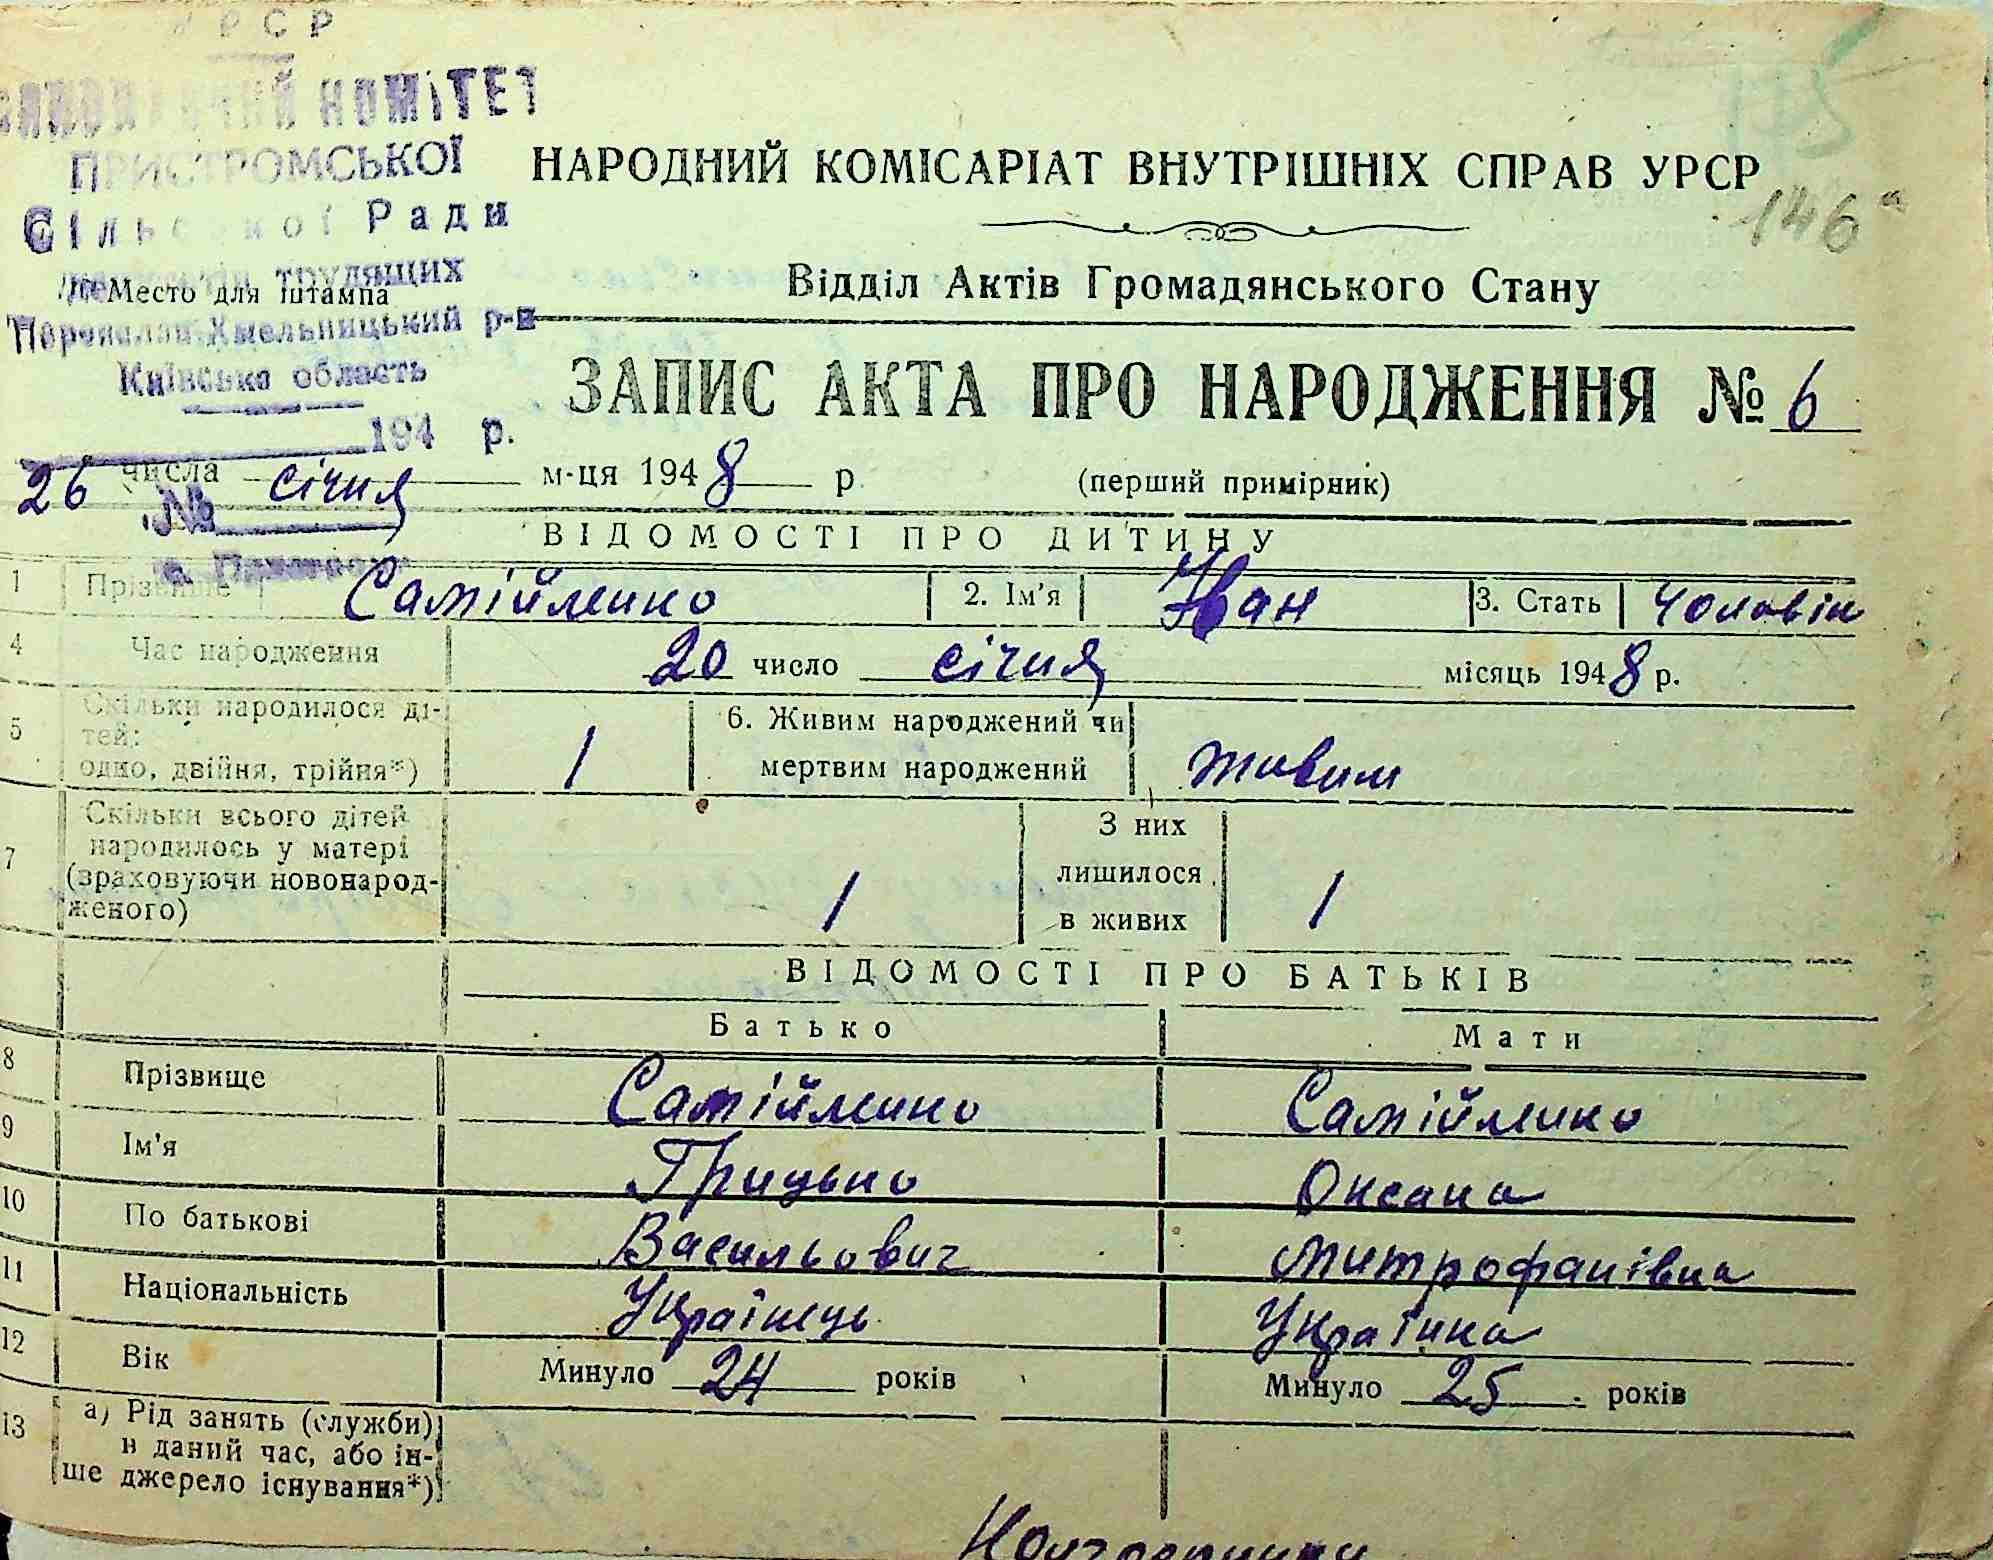 УРСР
ВИКОНАВЧИЙ КОМІТЕТ
ПРИСТРОМСЬКОЇ
Сільської Ради
депутатів трудящих
Место для штампа
Переяслав-Хмельницький р-н
Київська область
194 р.
№
НАРОДНИЙ КОМІСАРІАТ ВНУТРІШНІХ СПРАВ УРСР
146а
Відділ Актів Громадянського Стану
ЗАПИС АКТА ПРО НАРОДЖЕННЯ № 6
26 числа січня м-ця 1948 р (перший примірник)
ВІДОМОСТІ ПРО ДИТИНУ
1 Прізвище Самійленко 2. Ім'я Іван 3. Стать чоловік
4 Час народження 20 число січня місяць 1948 р.
5 Скільки народилося ді-
тей:
одно, двійня, трійня*) 1
6. Живим народжений чи
мертвим народжений живим
7 Скільки всього дітей
народилось у матері
(зраховуючи новонарод-
женого) 1
З них
лишилося
в живих 1
ВІДОМОСТІ ПРО БАТЬКІВ
Батько Мати
8 Прізвище Самійленко Самійленко
9 Ім'я Грицько Оксана
10 По батькові Васильович Митрофанівна
11 Національність Українець Українка
12 Вік Минуло 24 років Минуло 25 років
13 а) Рід занять (служби)
в даний час, або ін-
ше джерело існування*)